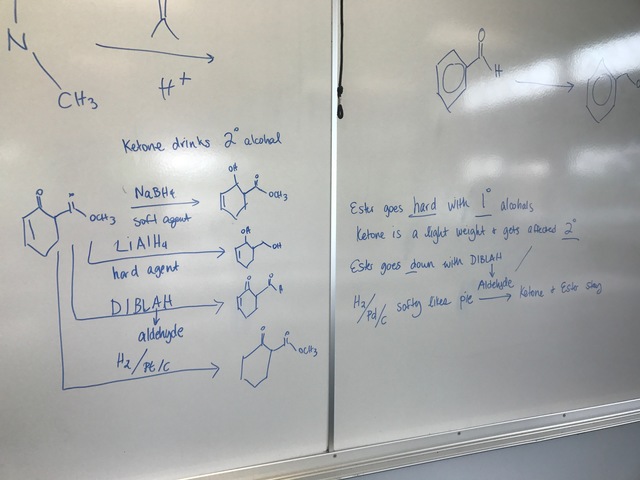 N
CH3
H+
Ketone drinks 2° alcohol
O
OCH3
NaBH4
soft agent
OH
OCH3
LiAlH4
hard agent
OH
OH
DIBLAH
aldehyde
O
H2/Pt/C
O
OCH3
O
H
Ester goes hard with 1° alcohols
Ketone is a light weight + gets affected 2°
Ester goes down with DIBLAH
Aldehyde
H2/Pd/C softy likes pie → Ketone + Ester stay